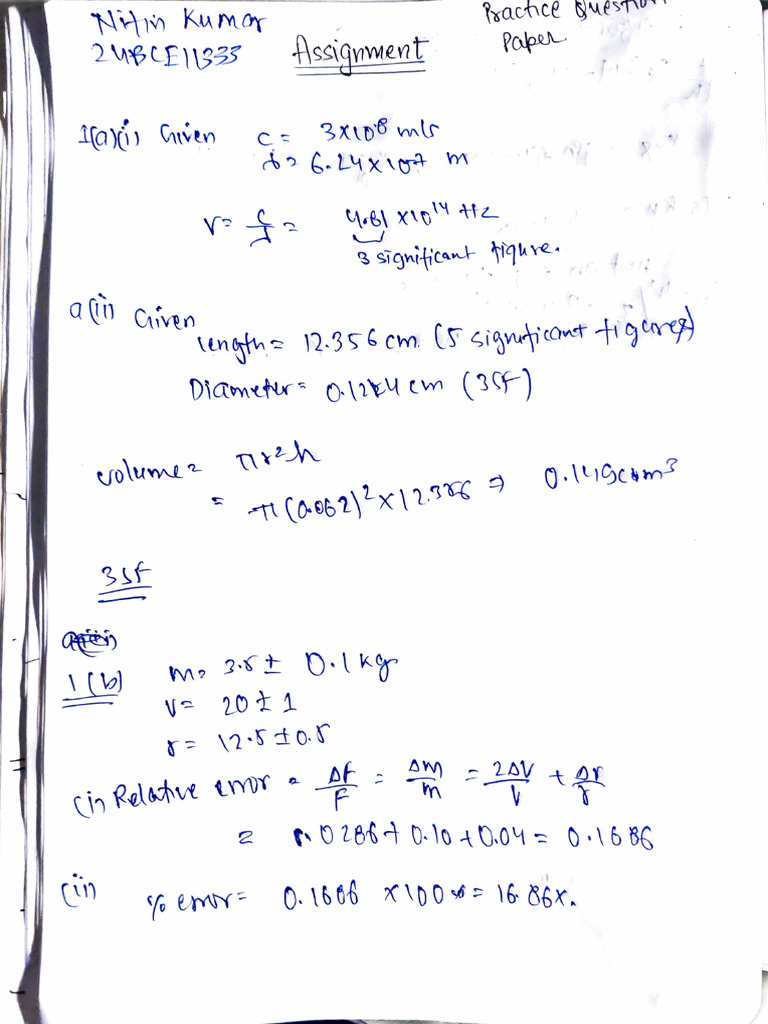 Nitin Kumar
Practice Question
24BCE11333
Assignment
Paper
1(a)(i) Given c = 3×10⁸ m/s
λ = 6.24×10⁻⁷ m
ν = c/λ = 4.81 ×10¹⁴ Hz
3 significant figure.
a(ii) Given
length = 12.356 cm (5 significant figures)
Diameter = 0.124 cm (3SF)
volume = πr²h
= π(0.062)²×12.356 ⇒ 0.149 cm³
3SF
1(b) m = 3.5 ± 0.1 kg
v = 20 ± 1
r = 12.5 ± 0.5
(i) Relative error = ΔF/F = Δm/m = 2ΔV/V + Δr/r
= 0.0286 + 0.10 + 0.04 = 0.1686
(ii) % error = 0.1686 ×100 = 16.86%.